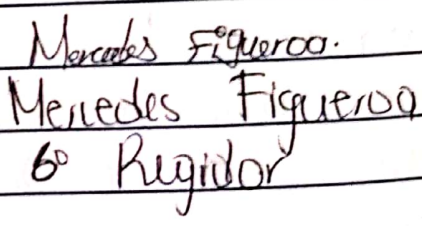 Mercedes Figueroa.
Mercedes Figueroa
6º Regidor